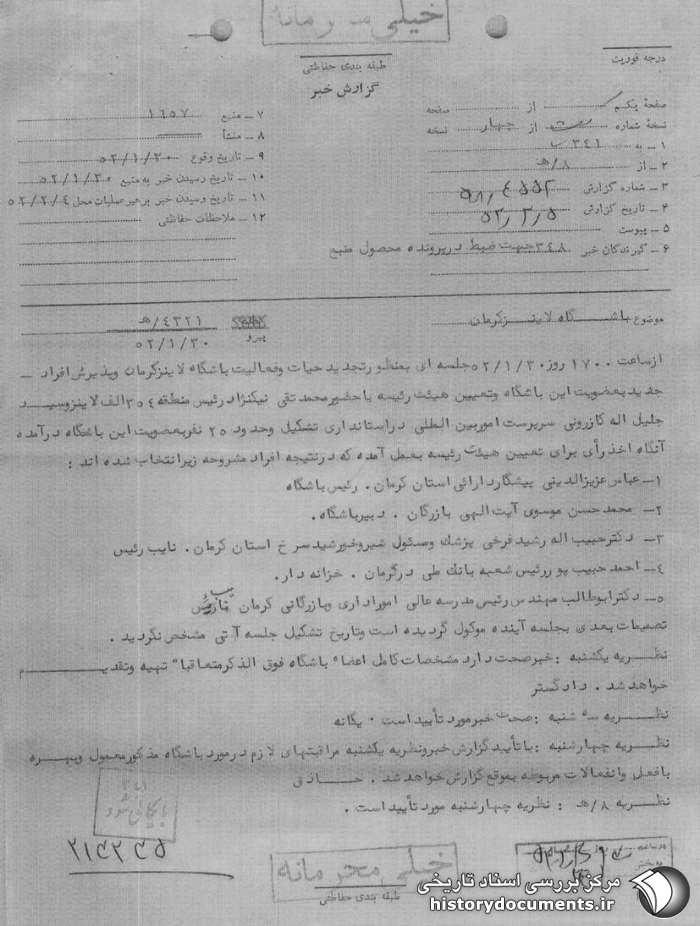 خیلی محرمانه
درجه فوریت
طبقه بندی حفاظتی
گزارش خبر
صفحهٔ یکم از صفحه
نسخهٔ شماره از چهار نسخه
۱ـ به ۳۴۱
۲ـ از ۸/ﻫ
۳ـ شماره گزارش
۴ـ تاریخ گزارش
۵ـ پیوست
۶ـ گیرندگان خبر ۳۴۸ جهت ضبط درپرونده محصول منبع
۷ـ منبع ۱۶۵۷
۸ـ منشأ
۹ـ تاریخ وقوع ۵۲/۱/۳۰
۱۰ـ تاریخ رسیدن خبر به منبع ۵۲/۱/۳۰
۱۱ـ تاریخ رسیدن خبر برهبرعملیات محل ۵۲/۲/۴
۱۲ـ ملاحظات حفاظتی
موضوع باشگاه لاینزکرمان
پیرو ۴۳۲۱/ﻫ
۵۲/۱/۳۰
ازساعت ۱۷۰۰ روز ۵۲/۱/۳۰ جلسه ای بمنظورتجدید حیات وفعالیت باشگاه لاینزکرمان وپذیرش افراد ـ
جدید بعضویت این باشگاه وتعیین هیئت رئیسه باحضورمحمدتقی نیکنژاد رئیس منطقه ۳۵۴ الف لاینزوسید
جلیل اله کازرونی سرپرست اموربین المللی دراستانداری تشکیل وحدود ۲۵ نفربعضویت این باشگاه درآمده
آنگاه اخذ رأی برای تعیین هیئت رئیسه بعمل آمده که درنتیجه افراد مشروحه زیرانتخاب شده اند :
۱ـ عباس عزیزالدینی پیشکاردارائی استان کرمان . رئیس باشگاه
۲ـ محمدحسن موسوی آیت الهی بازرگان . دبیرباشگاه .
۳ـ دکترحبیب اله رشیدفرخی پزشک ومسئول شیروخورشیدسرخ استان کرمان . نایب رئیس
۴ـ احمد حبیب پوررئیس شعبه بانک ملی درکرمان . خزانه دار .
۵ـ دکترابوطالب مهندس رئیس مدرسه عالی اموراداری وبازرگانی کرمان
تصمیمات بعدی بجلسه آینده موکول گردیده است وتاریخ تشکیل جلسه آتی مشخص نگردید .
نظریه یکشنبه : خبرصحت دارد مشخصات کامل اعضاء باشگاه فوق الذکرمتعاقباً تهیه وتقدیم
خواهدشد . دادگستر
نظریه سه شنبه : صحت خبرمورد تأیید است . یگانه
نظریه چهارشنبه : باتأیید گزارش خبرونظریه یکشنبه مراقبتهای لازم درمورد باشگاه مذکورمعمول وبهره
بافعل وانفعالات مربوطه بموقع گزارش خواهد شد .
نظریه ۸/ﻫ : نظریه چهارشنبه مورد تأیید است .
بایگانی شود
۲۱۴۲۴۵
خیلی محرمانه
طبقه بندی حفاظتی
مرکز بررسی اسناد تاریخی
historydocuments.ir